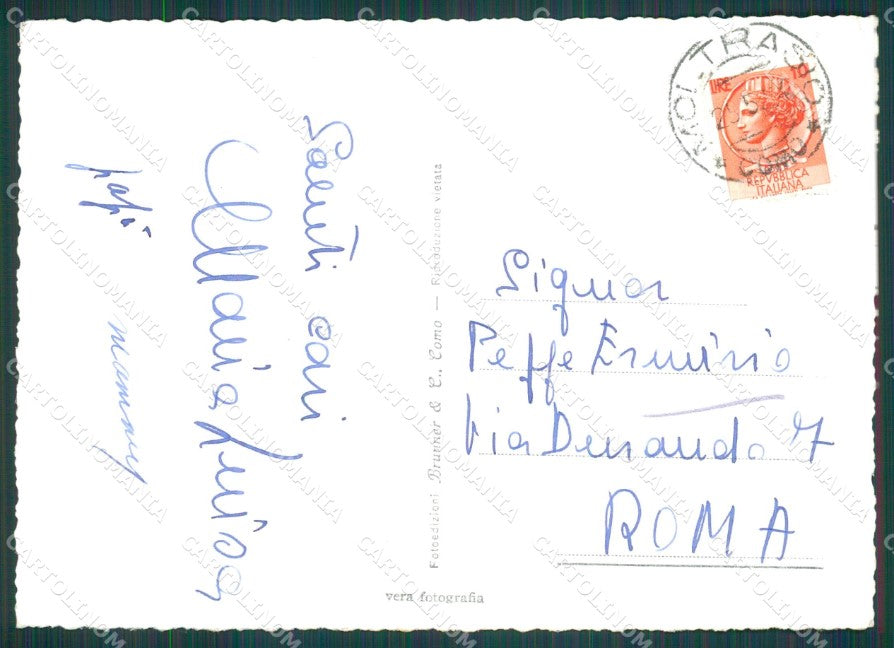 Saluti cari
Maria Luisa
papà
mammy
Fotoedizioni Brunner & C., Como — Riproduzione vietata
vera fotografia
MOLTRASIO
COMO
LIRE 10
REPVBBLICA
ITALIANA
Signor
Peffe Erminio
Via Durando 7
ROMA
CARTOLINOMANIA